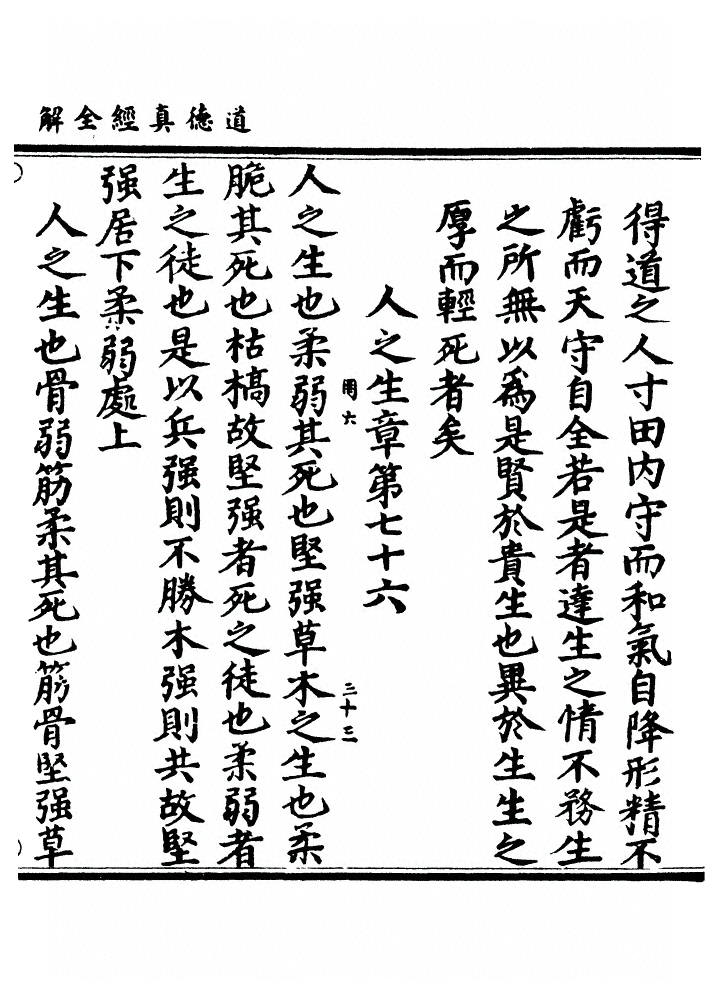 道德真經全解
得道之人寸田內守而和氣自降形精不
虧而天守自全若是者達生之情不務生
之所無以為是賢於貴生也異於生生之
厚而輕死者矣
人之生章第七十六
用六
三十三
人之生也柔弱其死也堅强草木之生也柔
脆其死也枯槁故堅强者死之徒也柔弱者
生之徒也是以兵强則不勝木强則共故堅
强居下柔弱處上
人之生也骨弱筋柔其死也筋骨堅强草